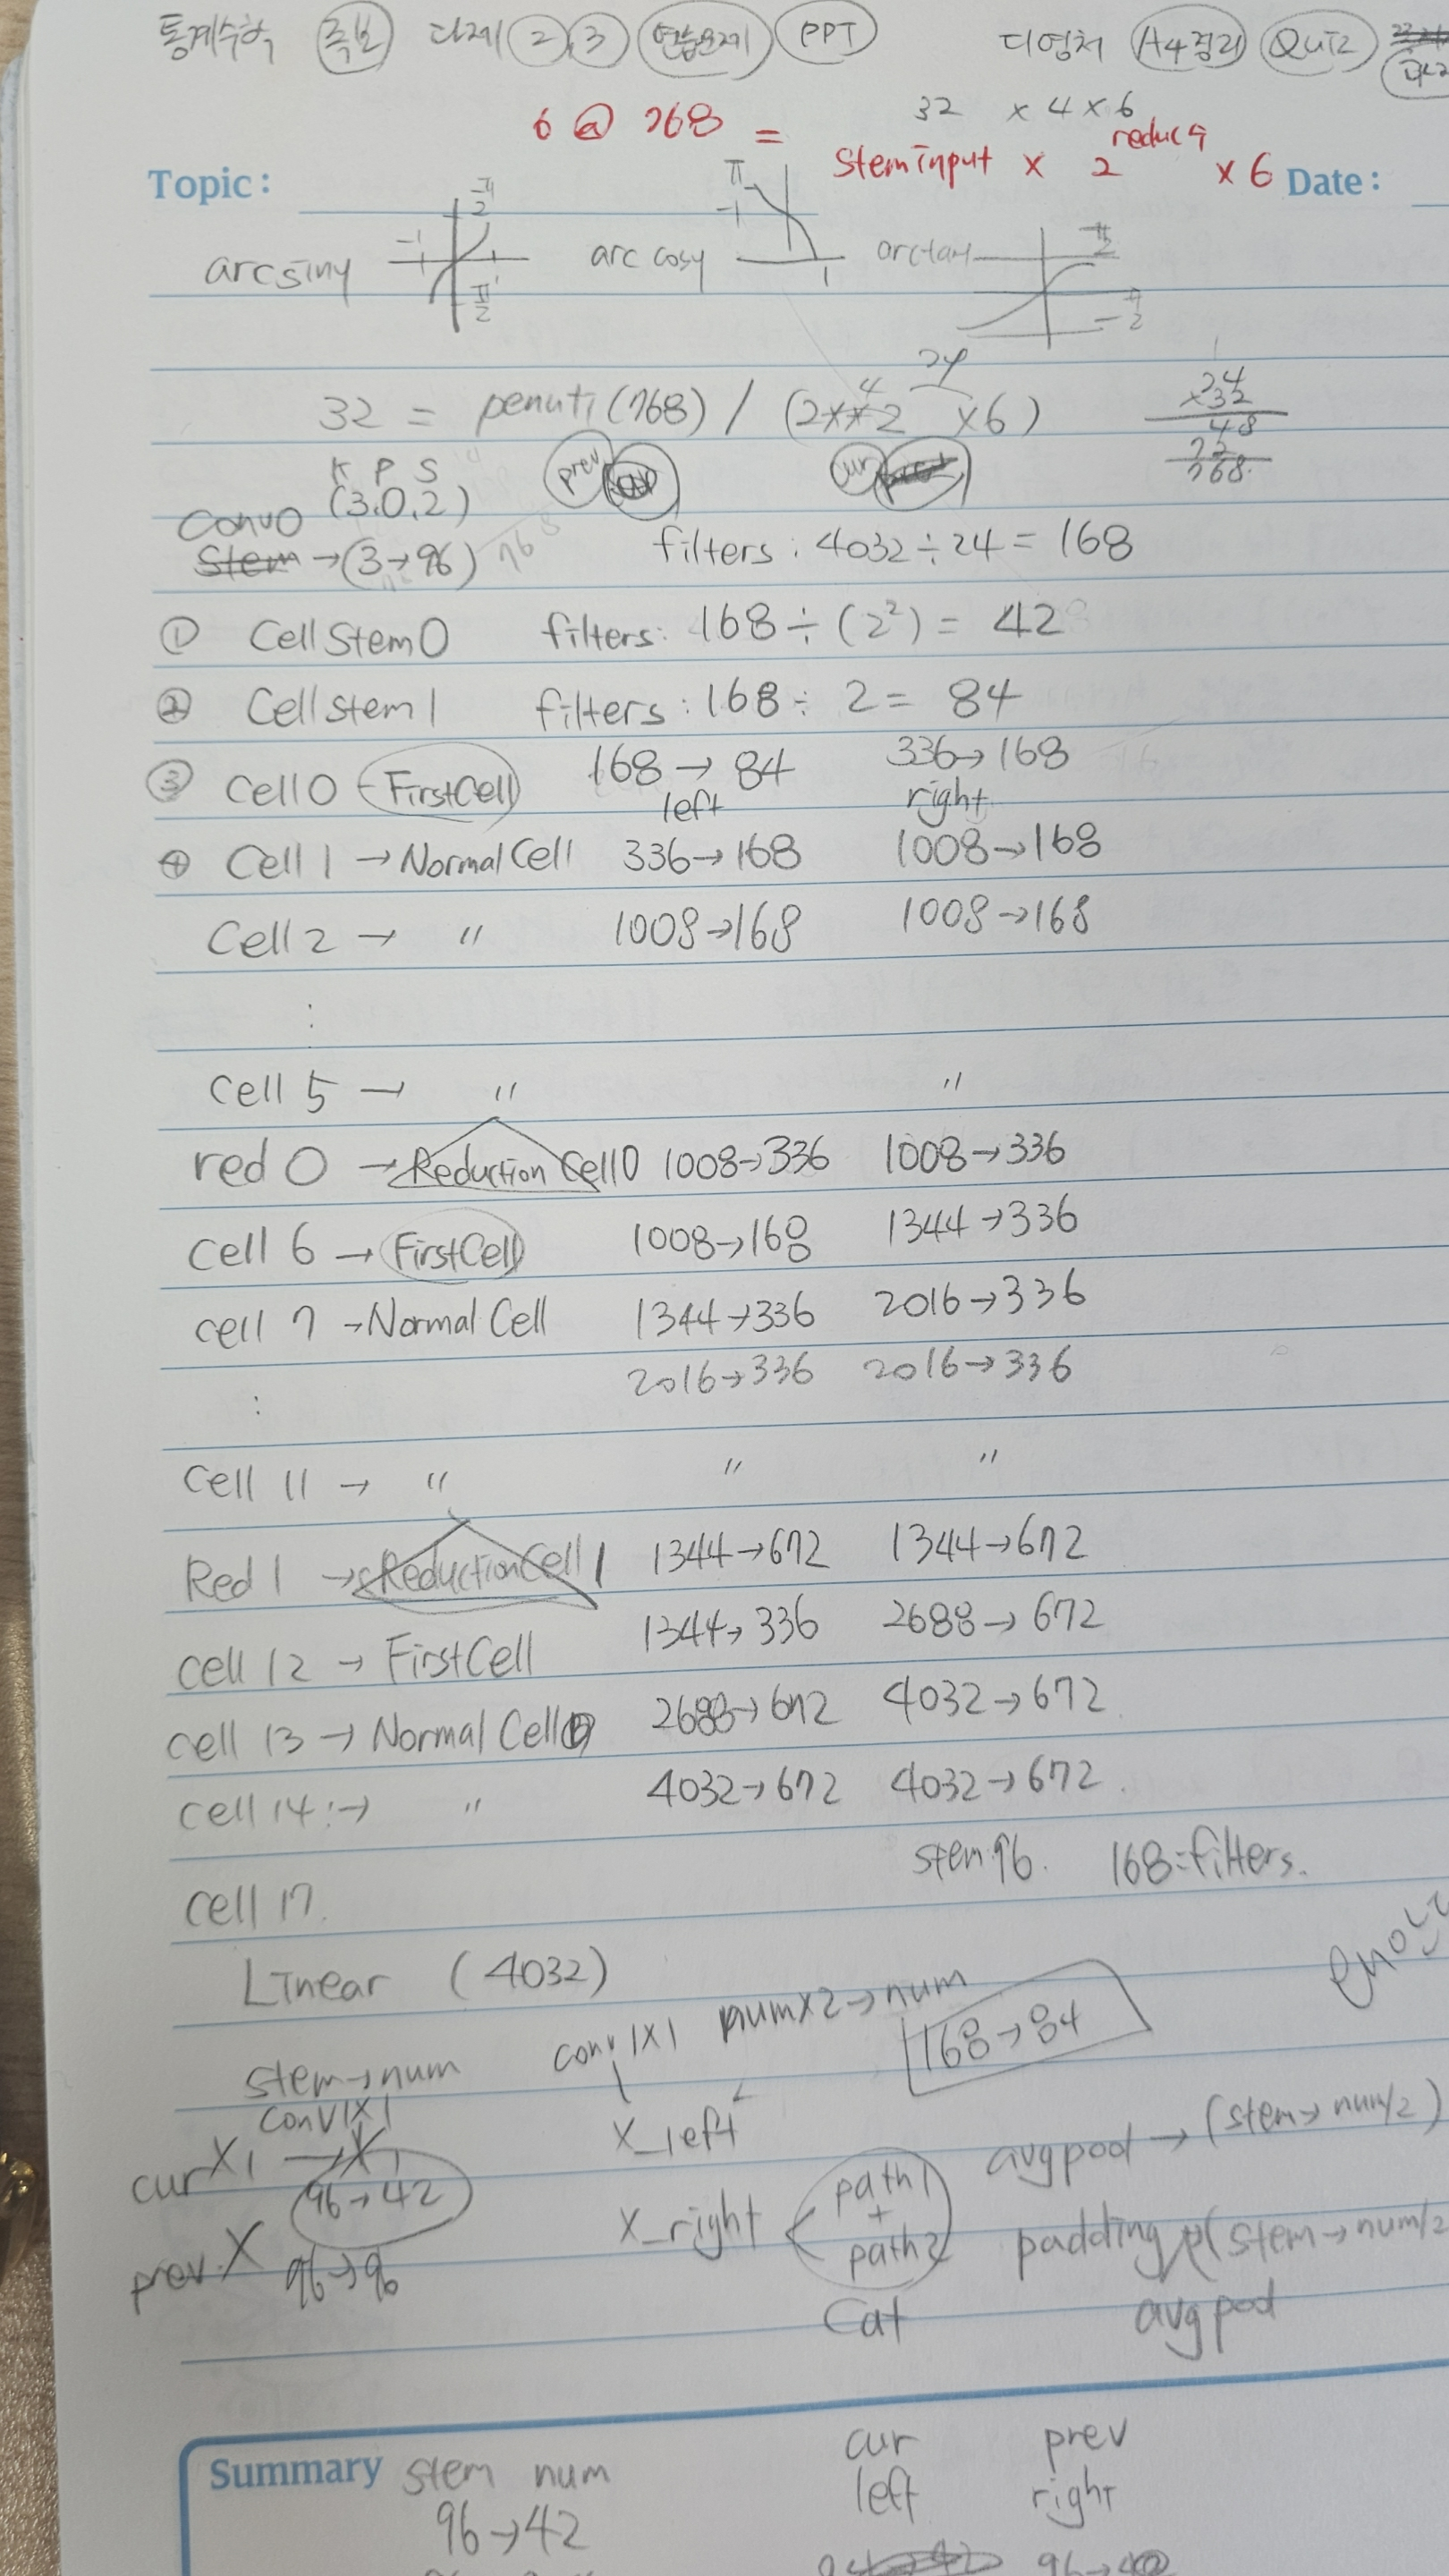 통계수학 족보 과제 2,3 연습문제 PPT 디영처 A4정리 QUIZ
6 @ 768 = 32 x 4 x 6
Stem input x 2^reduc수 x 6
Topic: Date:
arcsiny -1 1 π/2 -π/2 arc cosy π -1 1 arctan π/2 -π/2
32 = penulti(768) / (2**2 x6) 4 24
24
x32
48
72
768
K P S
prev cur
Conv0 (3,0,2)
Stem → (3→96) filters : 4032÷24 = 168
① Cell Stem 0 filters: 168 ÷ (2²) = 42
② Cell stem 1 filters : 168 ÷ 2 = 84
③ Cell 0 - FirstCell 168 → 84 left 336→168 right
④ Cell 1 → Normal Cell 336→168 1008→168
Cell 2 → 〃 1008→168 1008→168
:
Cell 5 → 〃 〃
red 0 → Reduction Cell0 1008→336 1008→336
Cell 6 → FirstCell 1008→168 1344→336
cell 7 → Normal Cell 1344→336 2016→336
: 2016→336 2016→336
Cell 11 → 〃 〃 〃
Red 1 → Reduction Cell 1 1344→672 1344→672
cell 12 → FirstCell 1344→336 2688→672
cell 13 → Normal Cell 2688→672 4032→672
cell 14 : → 〃 4032→672 4032→672
stem 96. 168=filters.
cell 17.
Linear (4032)
stem→num conv 1X1 numx2→num 168→84
conv1X1
cur X1 → X1 X_left avgpool → (stem→ num/2)
96→42
prev. X 96→96 X_right < path1 + path2 padding (stem→num/2
Cat avgpool
Summary stem num cur prev
left right
96→42
96→42